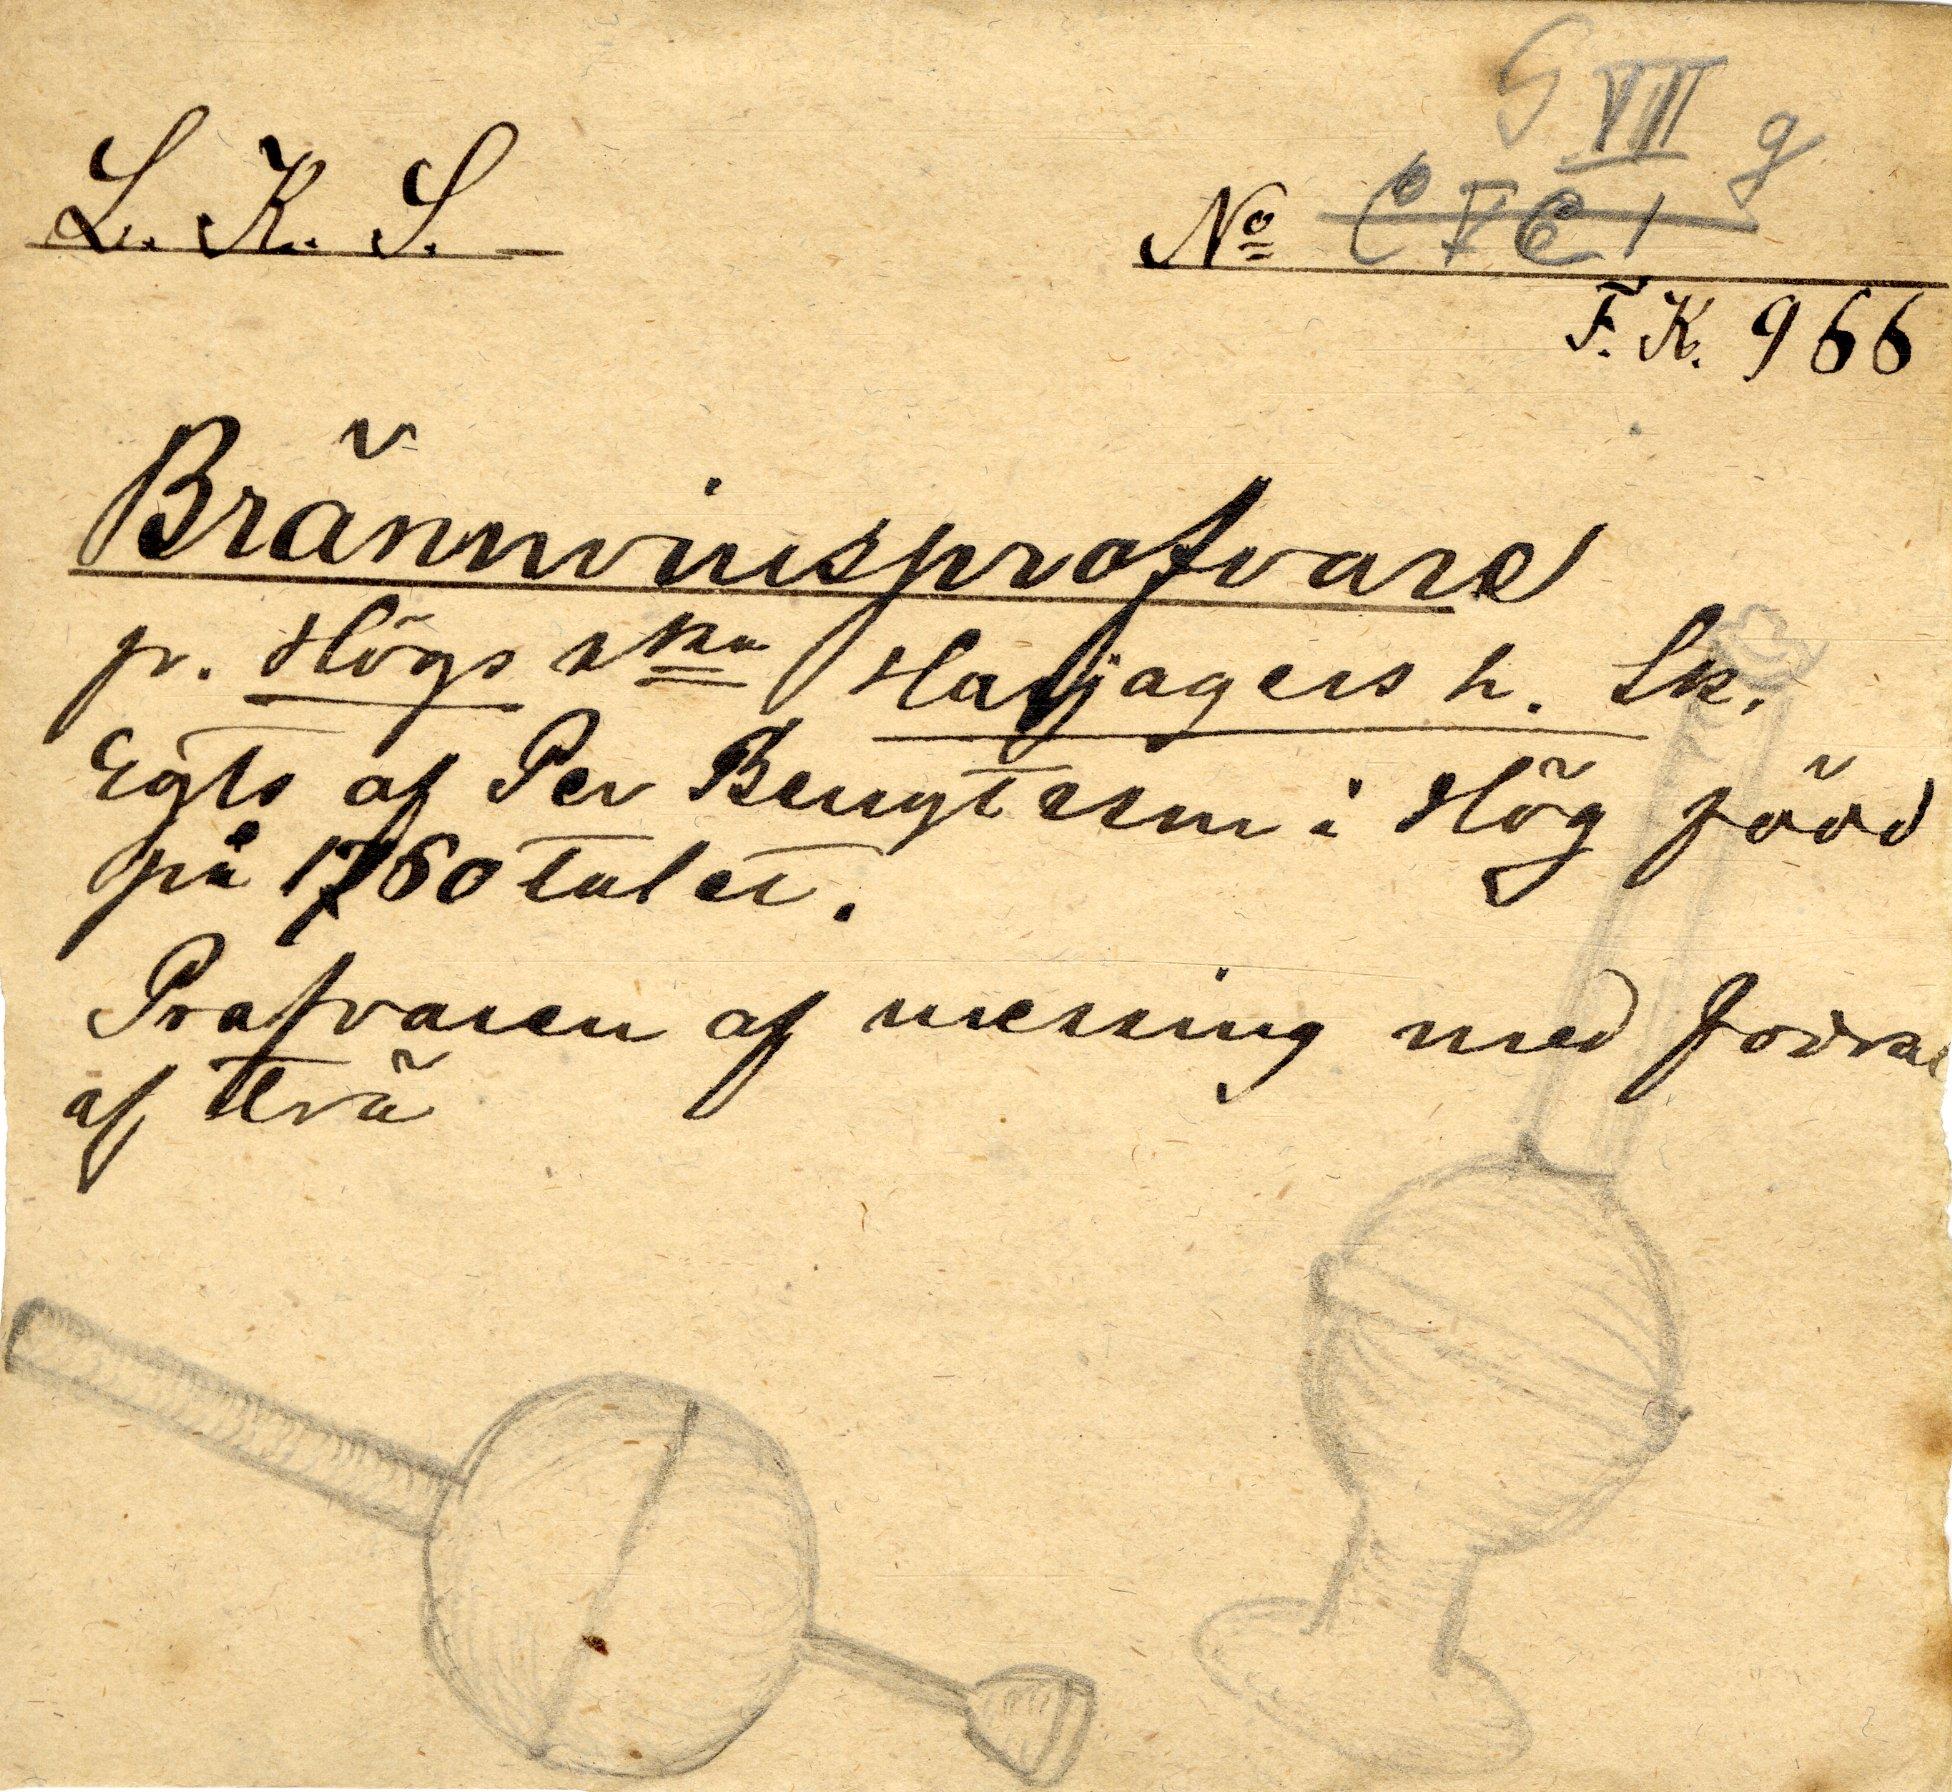 S VII g
L. K. S. No C V C 1
F. K. 966
Brännvinsprofvare
fr. Högs skn Harjagers h. Sk.
Egts af Per Bengtsson i Hög född
på 1760 talet.
Profvaren af messing med fodral
af trä